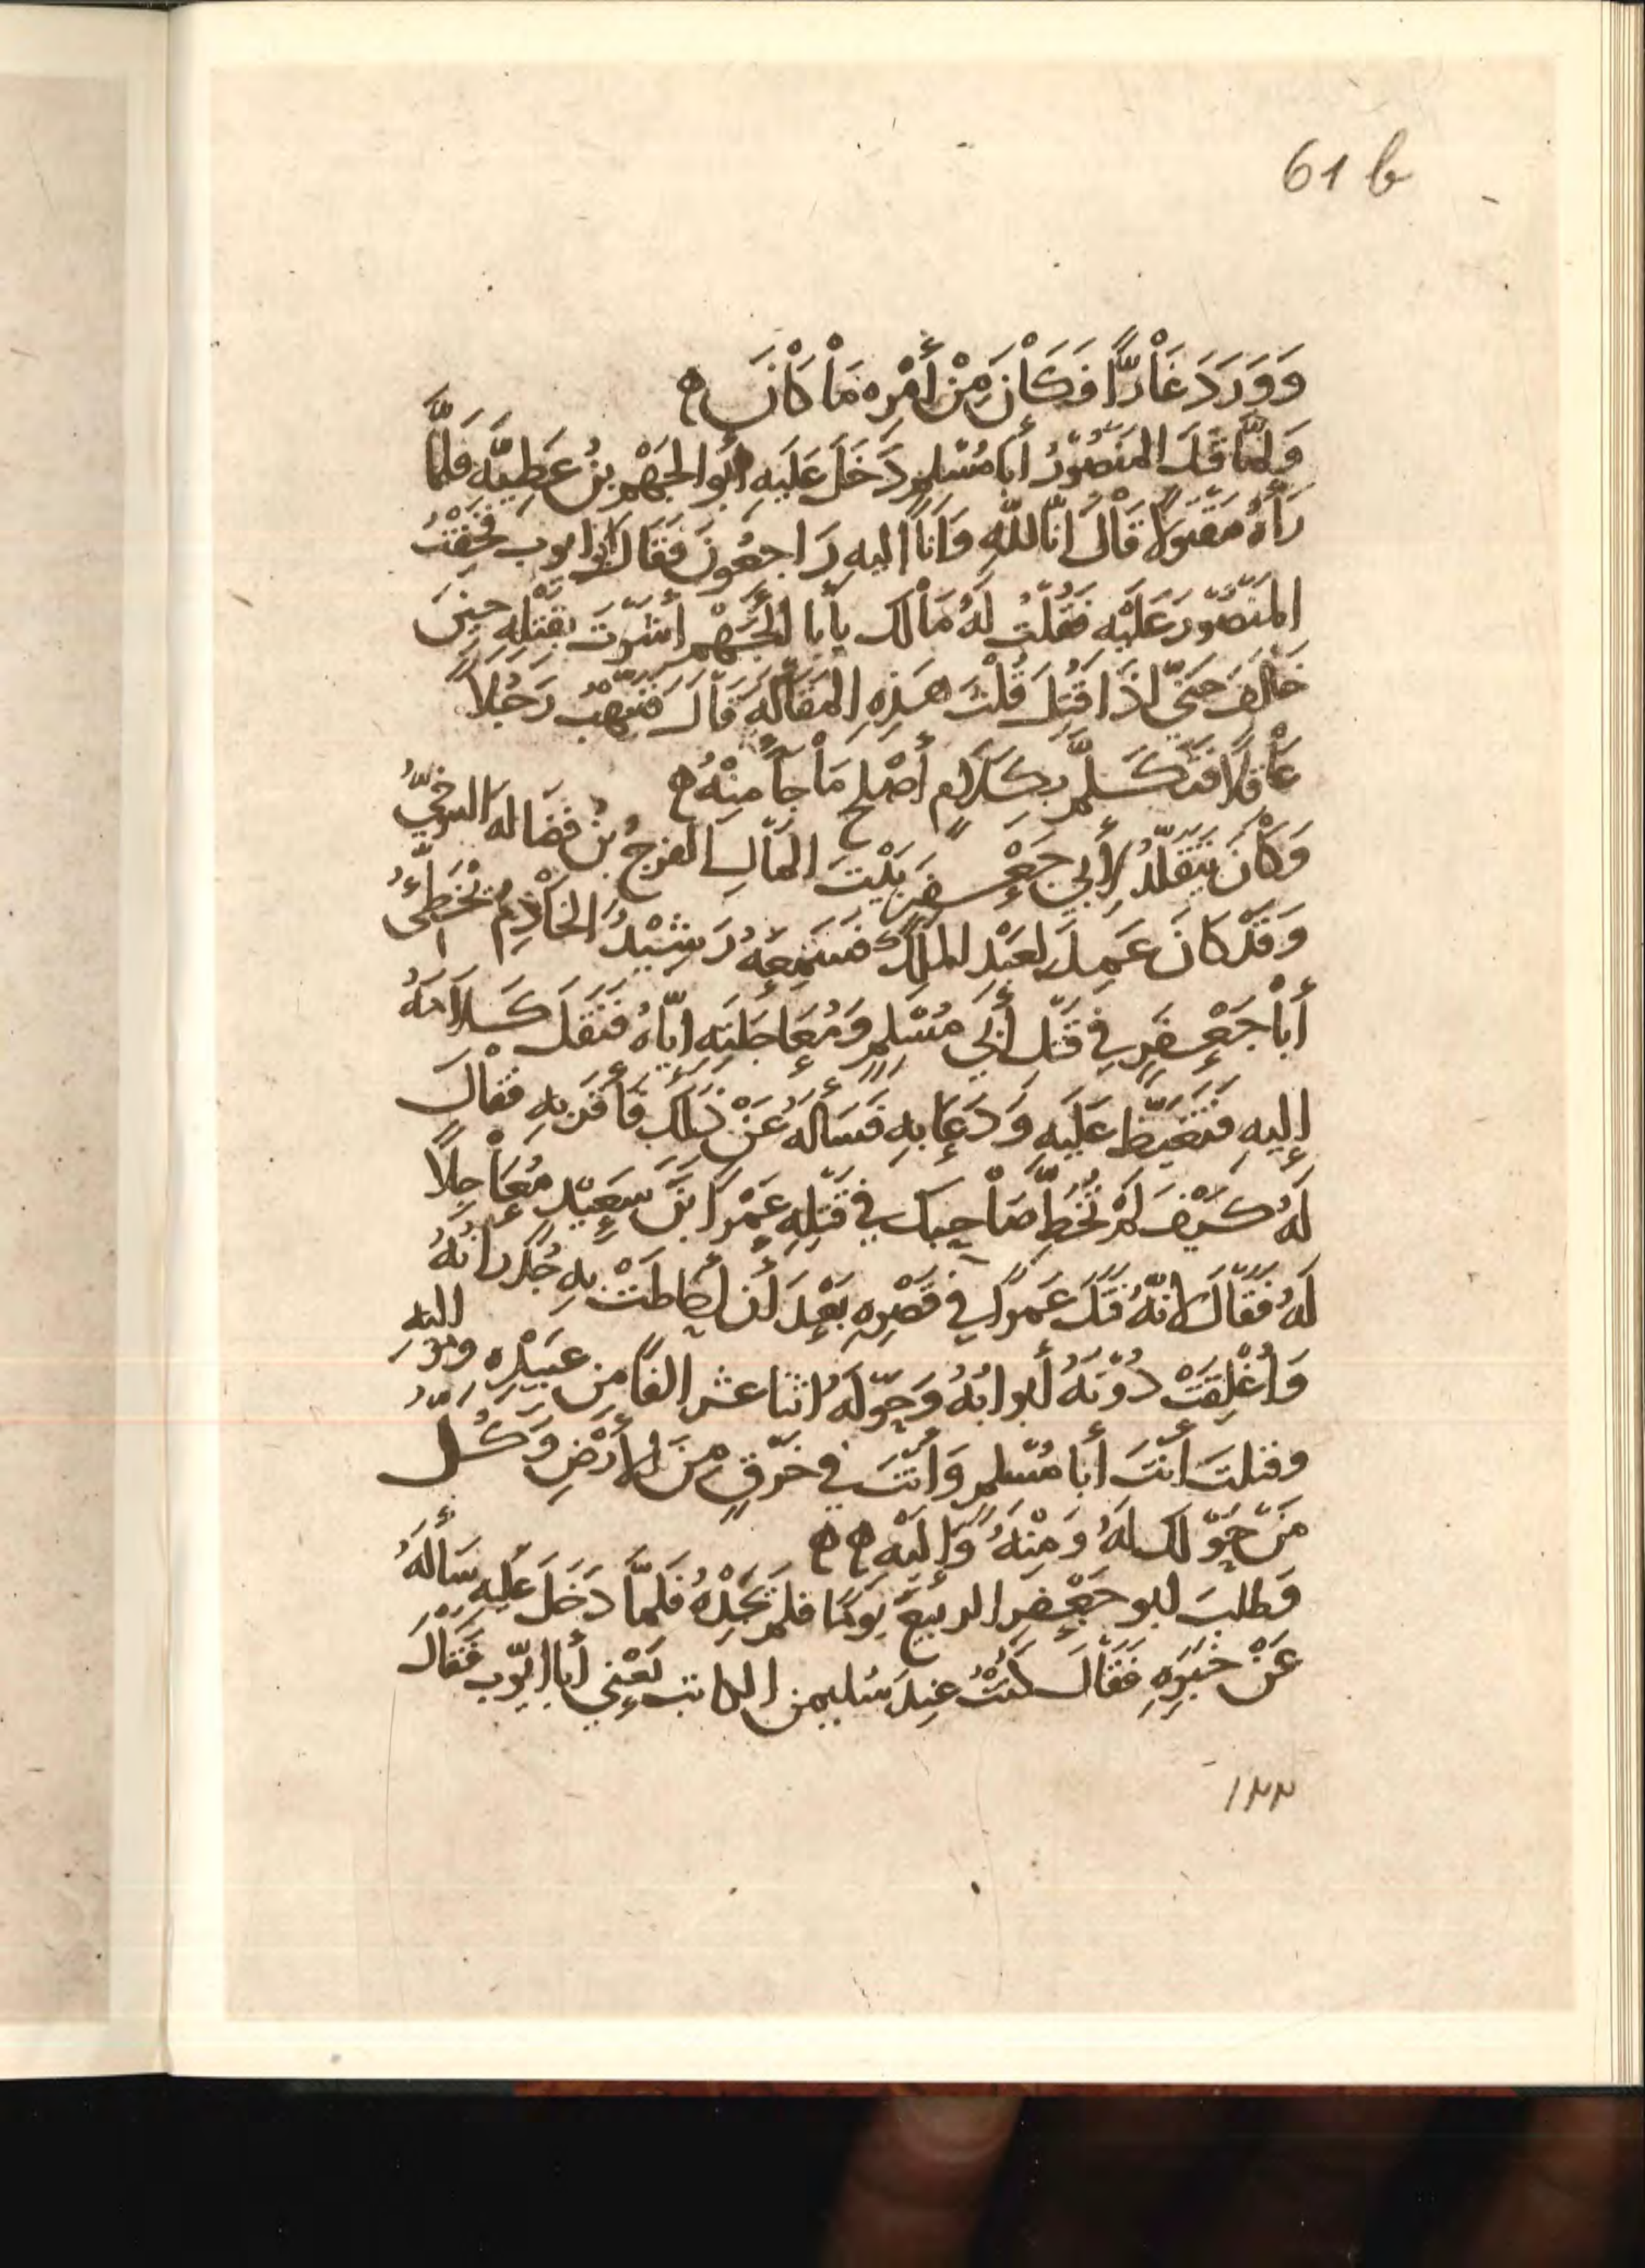 61 b
وَوَرَدَ غَارًّا فَكَانَ مِنْ أَمْرِهِ مَا كَانَ ه
وَلَمَّا قَتَلَ المَنصُورُ أَبَا مُسْلِمٍ دَخَلَ عَلَيهِ أَبُو الجَهْمِ بنُ عَطِيَّه فَلَمَّا
رَأَهُ مَقتولًا قَالَ انَّا للَّهِ وَانَّا اليهِ رَاجِعُونَ فَقَالَ ابو ايوب فَخِفْتُ
المَنصُورَ عَلَيْهِ فَقُلتُ لَهُ مَالَك يأَبا الجَهْمِ أَشَرْتَ بِقَتلِهِ حِينَ
خَالَفَ حَتَّى اذَا قُتِلَ قُلْتَ هَذِهِ المَقَالَهَ قَالَ فَنَبَّهْتُ رَجُلًا
عَاقِلًا فَتَكَلَّمَ بِكَلَامٍ أَصْلَحَ مَا جَآ مِنْهُ ه
وَكَانَ يَتَقَلَّدُ لِأَبِي جَعْفَرٍ بَيْتَ المَالِ الفرجُ بنُ فضَالهَ التنوخيُّ
وَقَدْ كَانَ عَمِلَ لِعَبْدِ المَلِكِ فَسَمِعَهُ رَشِيْدُ الخَادِمُ يُخَطِّئُ
أَبَا جَعْفَرٍ فِي قَتلِ أَبِي مُسْلِمٍ وَمُعَاجَلَتِهِ ايَّاهُ فَنَقَلَ كَلَامَهُ
إِليهِ فَتَغَيَّظَ عَلَيهِ وَدَعَا بهِ فَسَأَلَهُ عَنْ ذَلِكَ فَأَقَرَّ بهِ فَقَالَ
لَهُ كَيْفَ لَمْ تُخَطِّ صَاحِبَكَ فِي قَتلِهِ عَمْرَا بنَ سَعِيْدٍ مُعَاجِلًا
لَهُ فَقَالَ لانَّهُ قَتَلَ عَمرًا فِي قَصْرِهِ بَعْدَ أَن أَحَاطَتْ بهِ جُدرانُهُ
وَأُغْلِقَتْ دُوْنَهُ أَبوابُهُ وَحَوْلَهُ اثنا عشر الفًا مِن عَبيْدِهِ ومَوَاليهِ
وقتلتَ أَنتَ أَبا مُسْلمٍ وَانتَ فِي خَرْقٍ مِنَ الأَرْضِ وَكُلُّ
مَن حَوْلَك لَهُ وَمِنْهُ وَإِلَيْهِ ه ه
وَطلبَ ابو جَعْفَرٍ الربيعَ يَومًا فلم يَجِدْهُ فَلَمَّا دَخَلَ عَليهِ سَأَلَهُ
عَنْ خَبَرِهِ فَقَالَ كُنْتُ عِندَ سُليمن الكاتب يَعْنِي أَبا ايّوب فَقَالَ
١٢٢